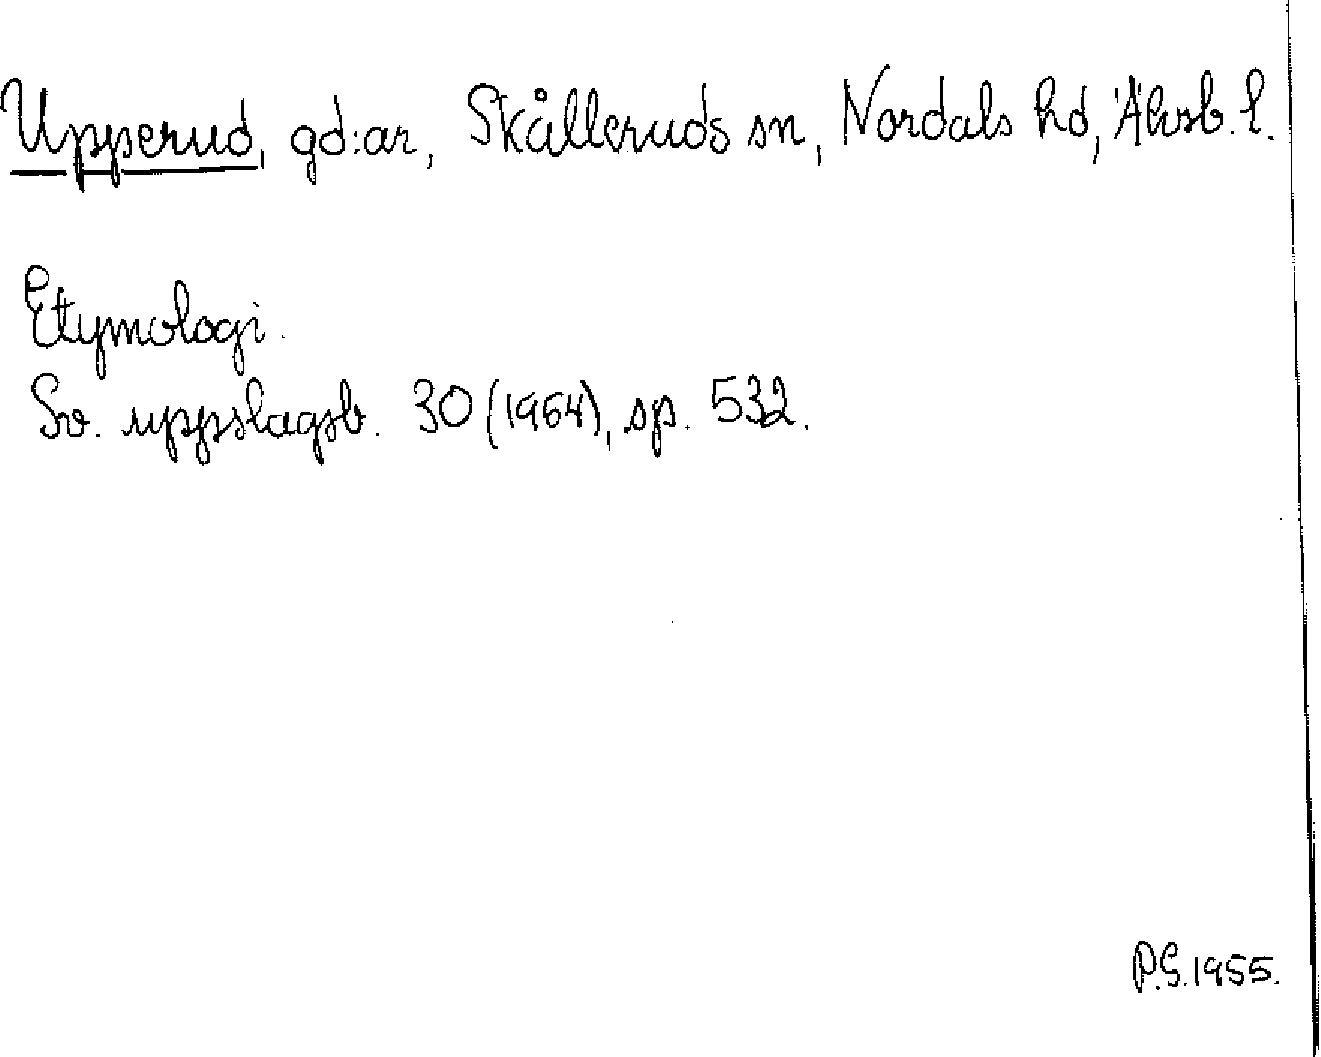 Upperud, gd:ar, Skålleruds sn, Nordals hd, Älvsb. l.
Etymologi.
Sv. uppslagsb. 30 (1954), sp. 532.
P.G. 1955.